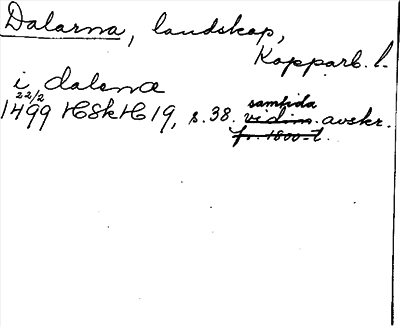 Dalarna, landskap,
Kopparb. l.
i dalana
22/2
1499 HSkH 19, s. 38. samtida vidim. avskr.
fr. 1800-t.